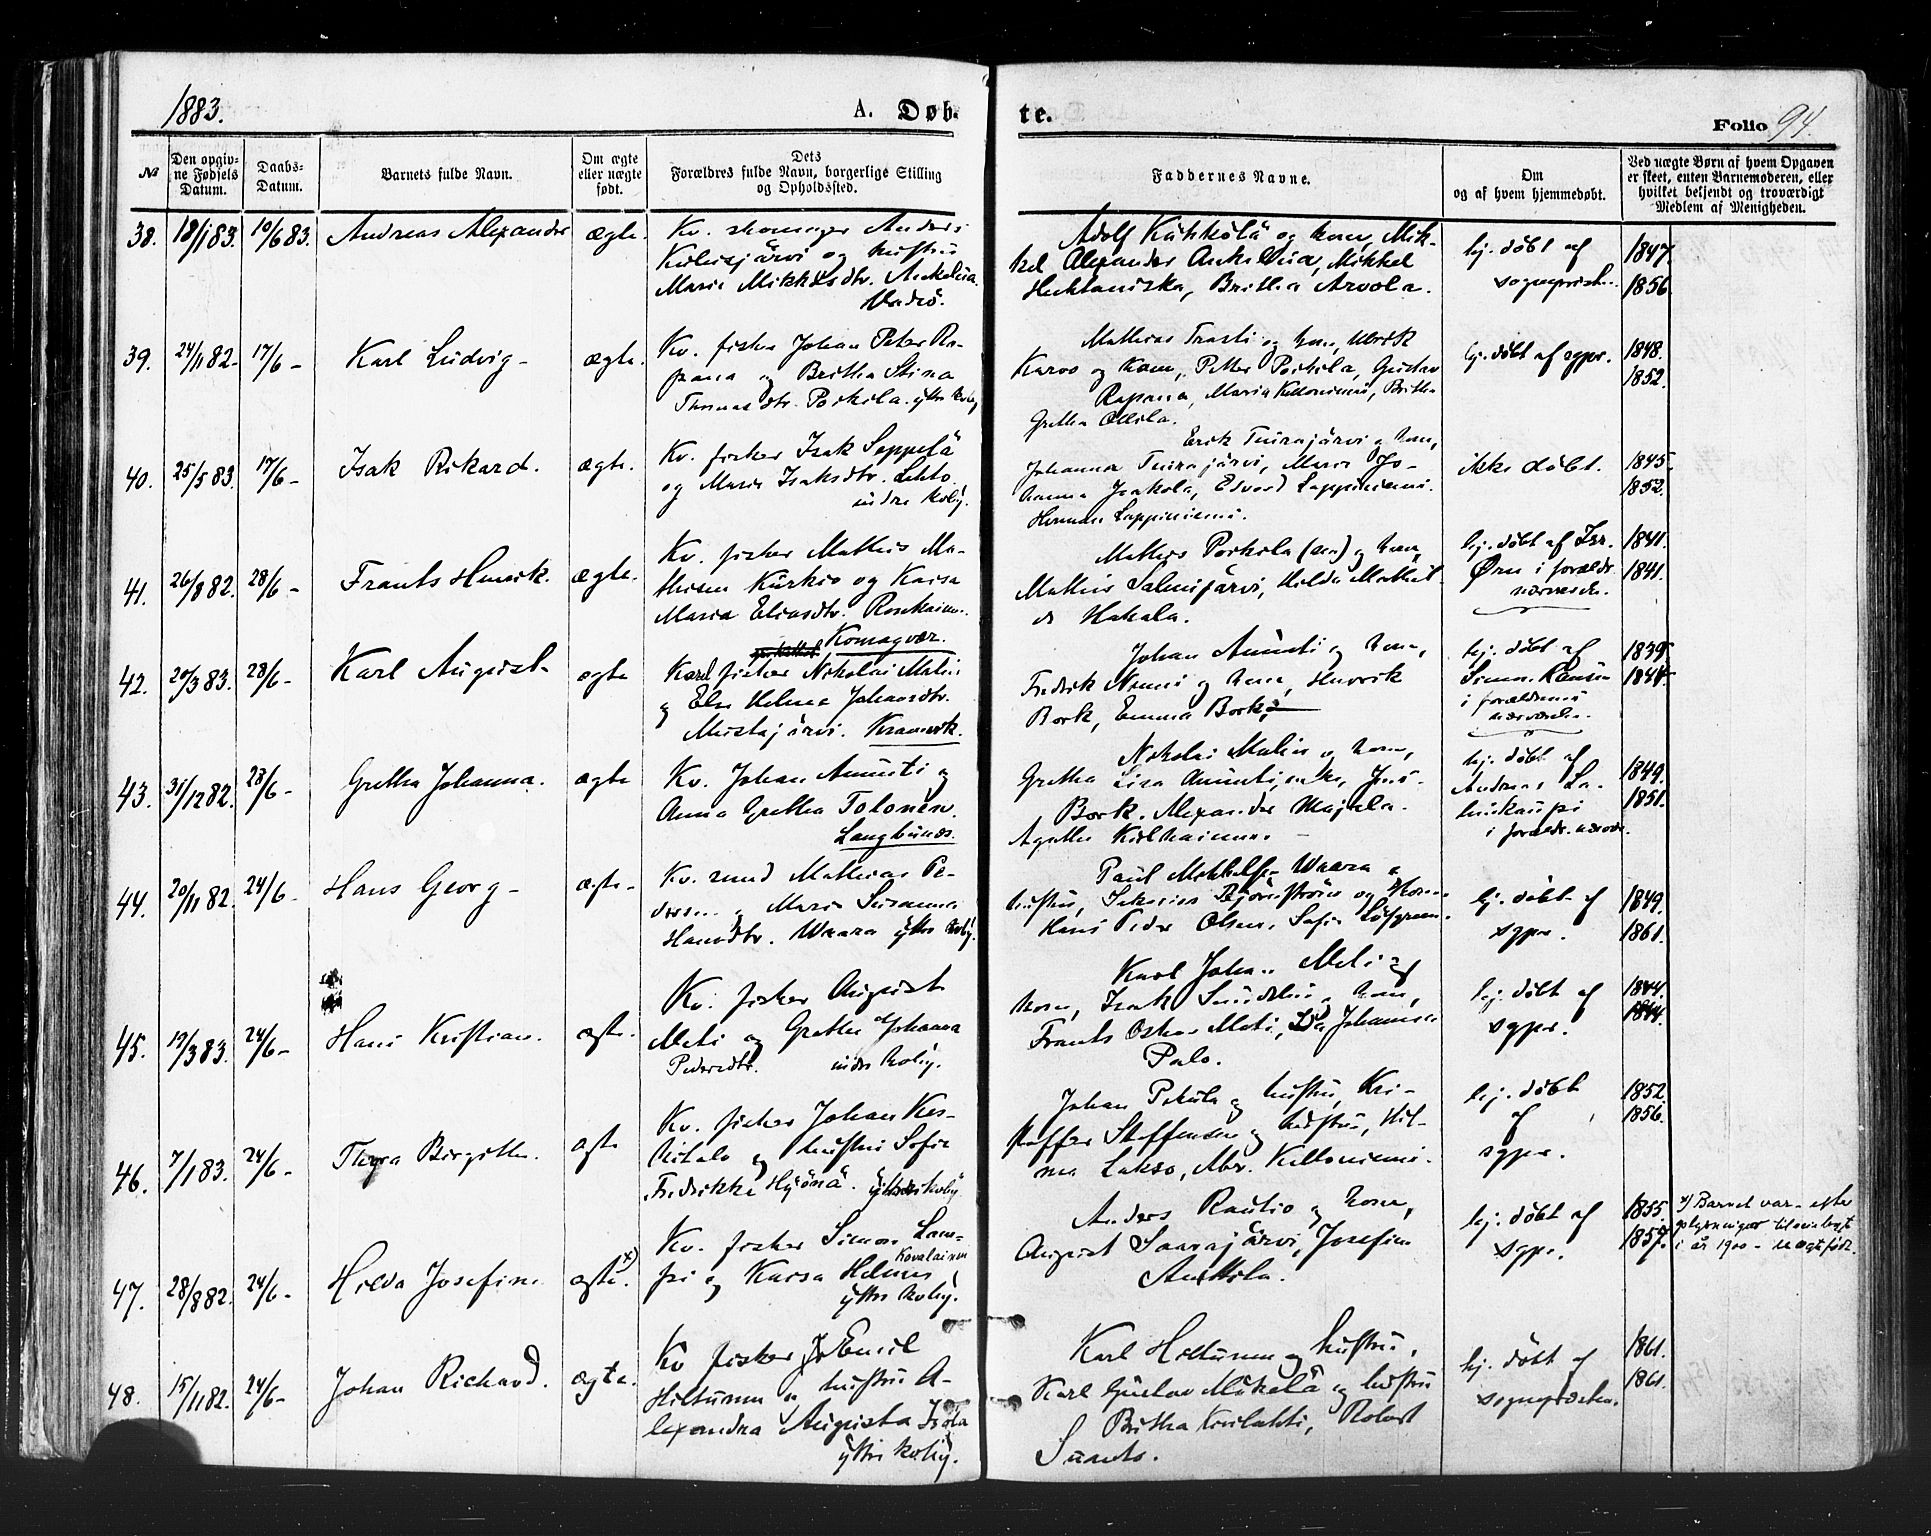 1883. A. Døb- te. Folio 94.
№
Den opgiv-
ne Fødsels
Datum.
Daabs-
Datum.
Barnets fulde Navn.
Om ægte
eller uægte
født.
Dets
Forældres fulde Navn, borgerlige Stilling
og Opholdssted.
Faddernes Navne.
Om
og af hvem hjemmedøbt.
Ved uægte Børn af hvem Opgaven
er skeet, enten Barnemoderen, eller
hvilket bekjendt og troværdigt
Medlem af Menigheden.
38. 18/1 83. 10/6 83. Andreas Alexander ægte.
Kv. skomager Anders
og hustru
Maria Mikkelsdtr. Ankelvia.
Vadsø.
Adolf Kükkölä og kone, Mik-
kel Alexander Mikkel
Britha Arvola.
hj. døbt af
sognepresten.
1847.
1856.
39. 24/11 82- 17/6 - Karl Ludvig - ægte.
Kv. fisker Johan Peter Ra-
pana og Britha Stina
Thomasdtr. Porkila. yttre Kvby
Mathias Trasti og kone,
Karvo og kone, Petter Porkila, Gustav
Rapana, Maria Kelloniemi, Britha
Gretha Ollila.
hj. døbt af sgpr.
1848.
1852.
40. 25/5 83. 17/6 - Isak Rikard. ægte.
Kv. fisker Isak Seppelä
og Maria Isaksdtr. Lehto.
indre Kvby.
Erik Tuirajärvi og kone,
Johanna Tuirajärvi, Maria Jo-
hanna Isakola, Edvard Lappiniemi.
Herman Lappiniemi.
ikke døbt.
1845-
1852.
41. 26/8 82. 28/6 - Frants Henrik. ægte.
Kv. fisker Mathis Ma-
thisen Kürkio og Kaisa
Maria Eliasdtr.
Komagvær.
Mathis Porkila (sen) og kone,
Mathis Salmijärvi, Hilda Mathil-
de Hakala.
hj. døbt af Isr.
Ørn i forældr.
nærværelse.
1841.
1841.
42. 20/3 83. 28/6 - Karl August- ægte
fisker Nikolai Malin
og Else Helena Johansdtr.
Mustajärvi. Kramvik.
Johan Anunti og kone,
Fredrik Nenni og kone, Henrik
Bork, Emma Bork.
hj. døbt af
Simon
i forældrenes
nærværelse.
1839.
1844.
43. 31/12 82. 28/6 - Gretha Johanna. ægte
Kv. Johan Anunti og
Anna Gretha Tolonen.
Langbunes.
Nikolai Malin og kone,
Gretha Lisa Jens
Bork. Alexander Majala.
Agatha
hj. døbt af
Andreas La-
hukaupi
i forældr. nærvær.
1849.
1851.
44. 20/11 82. 24/6 - Hans Georg - ægte-
Kv. Mathias Pe-
dersen og Maria Susanna
Hansdtr. Waara yttre Kvby.
Paul Mikkelsen Waara og
hustru, Björnström og kone
Hans Peder Olsen, Sofie Löfgreen.
hj. døbt af
sgpr.
1849.
1861.
45. 19/3 83. 24/6 - Hans Kristian. ægte.
Kv. fisker August
Meti og Gretha Johanna
Pedersdtr. indre Kvby.
Karl Johan Meti og
kone, Isak og kone,
Frants Oskar Meti, Johansen
Palo.
hj. døbt af
sgpr.
1844.
1844.
46. 7/1 83. 24/6 - Thyra Birgitte. ægte
Kv. fisker Johan Kes-
kitalo og hustru Sofie
Fredrikke Hyönä. yttre Kvby.
Johan Pekula og hustru, Kri-
stoffer Steffensen og hustru, Hil-
ma Lakso, Abr. Kelloniemi.
hj. døbt
af
sgpr.
1852.
1856.
47. 28/8 82. 24/6 - Hilda Josefine ægte. x)
Kv. fisker Simon Lam-
pi og Kaisa Helena
Kovalainen
yttre Kvby.
Anders Rautio og kone,
August Saarajärvi, Josefine
Anttila.
hj. døbt af
sgpr.
1855.
1857.
x) Barnet var efter
oplysninger tilveiebragt
i år 1900 - uægte født.
48. 15/11 82. 24/6 - Johan Richard. ægte.
Kv fisker Joh Emil
Hiltunen og hustru A-
lexandra Augusta Isola
yttre Kvby.
Karl Hiltunen og hustru,
Karl Gustav Mükelä og hustru
Britha Kivilahti, Robert
Suanto.
hj. døbt af
sognepresten.
1861.
1861.